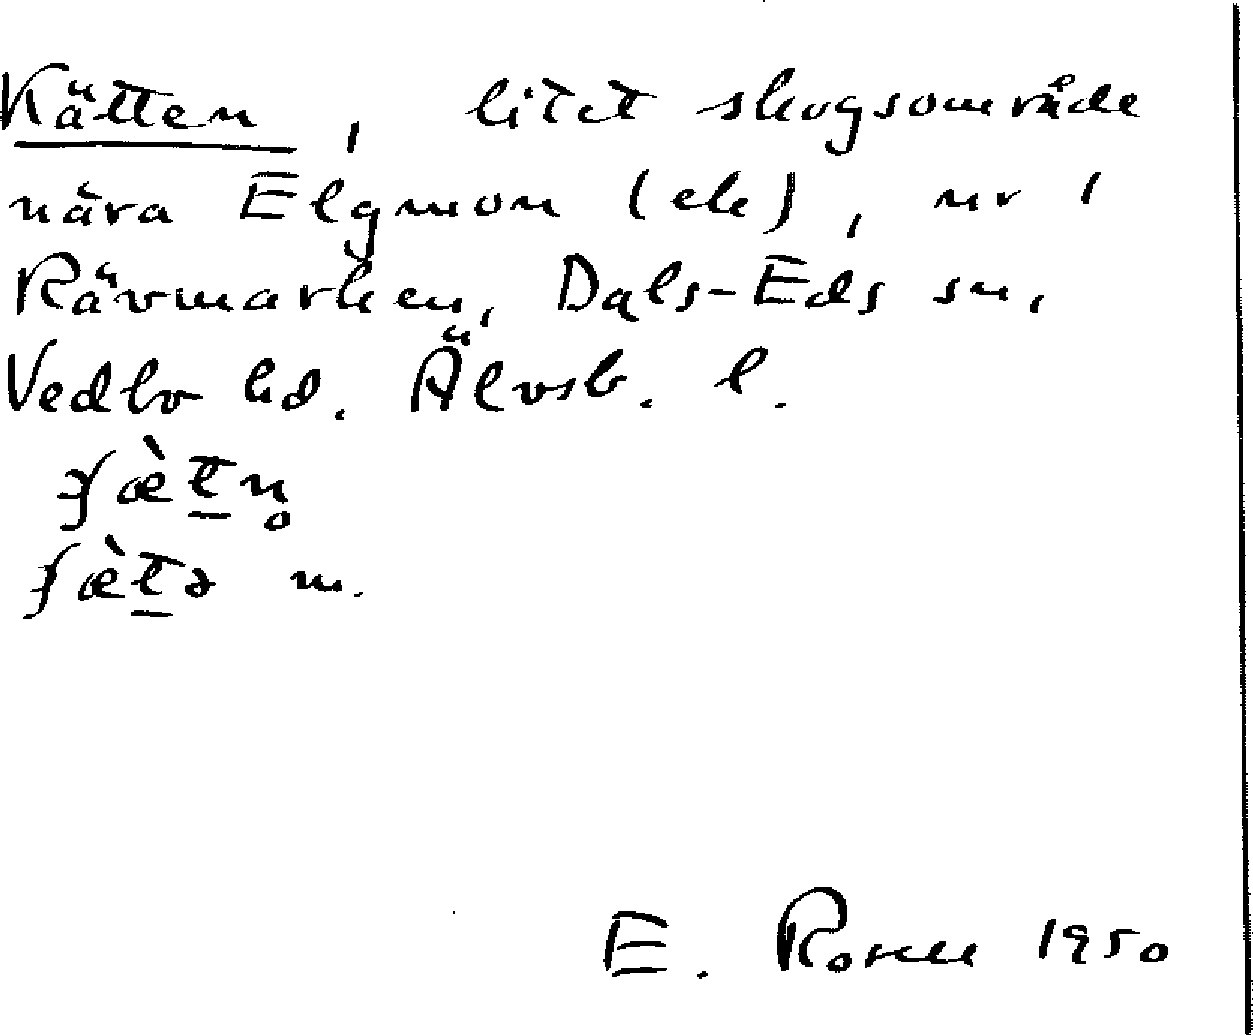 Kätten, litet skogsområde
nära Elgmon (ek), nr 1
Rävmarken, Dals-Eds sn,
Vedbo hd. Älvsb. l.
m.
E. Rosell 1950